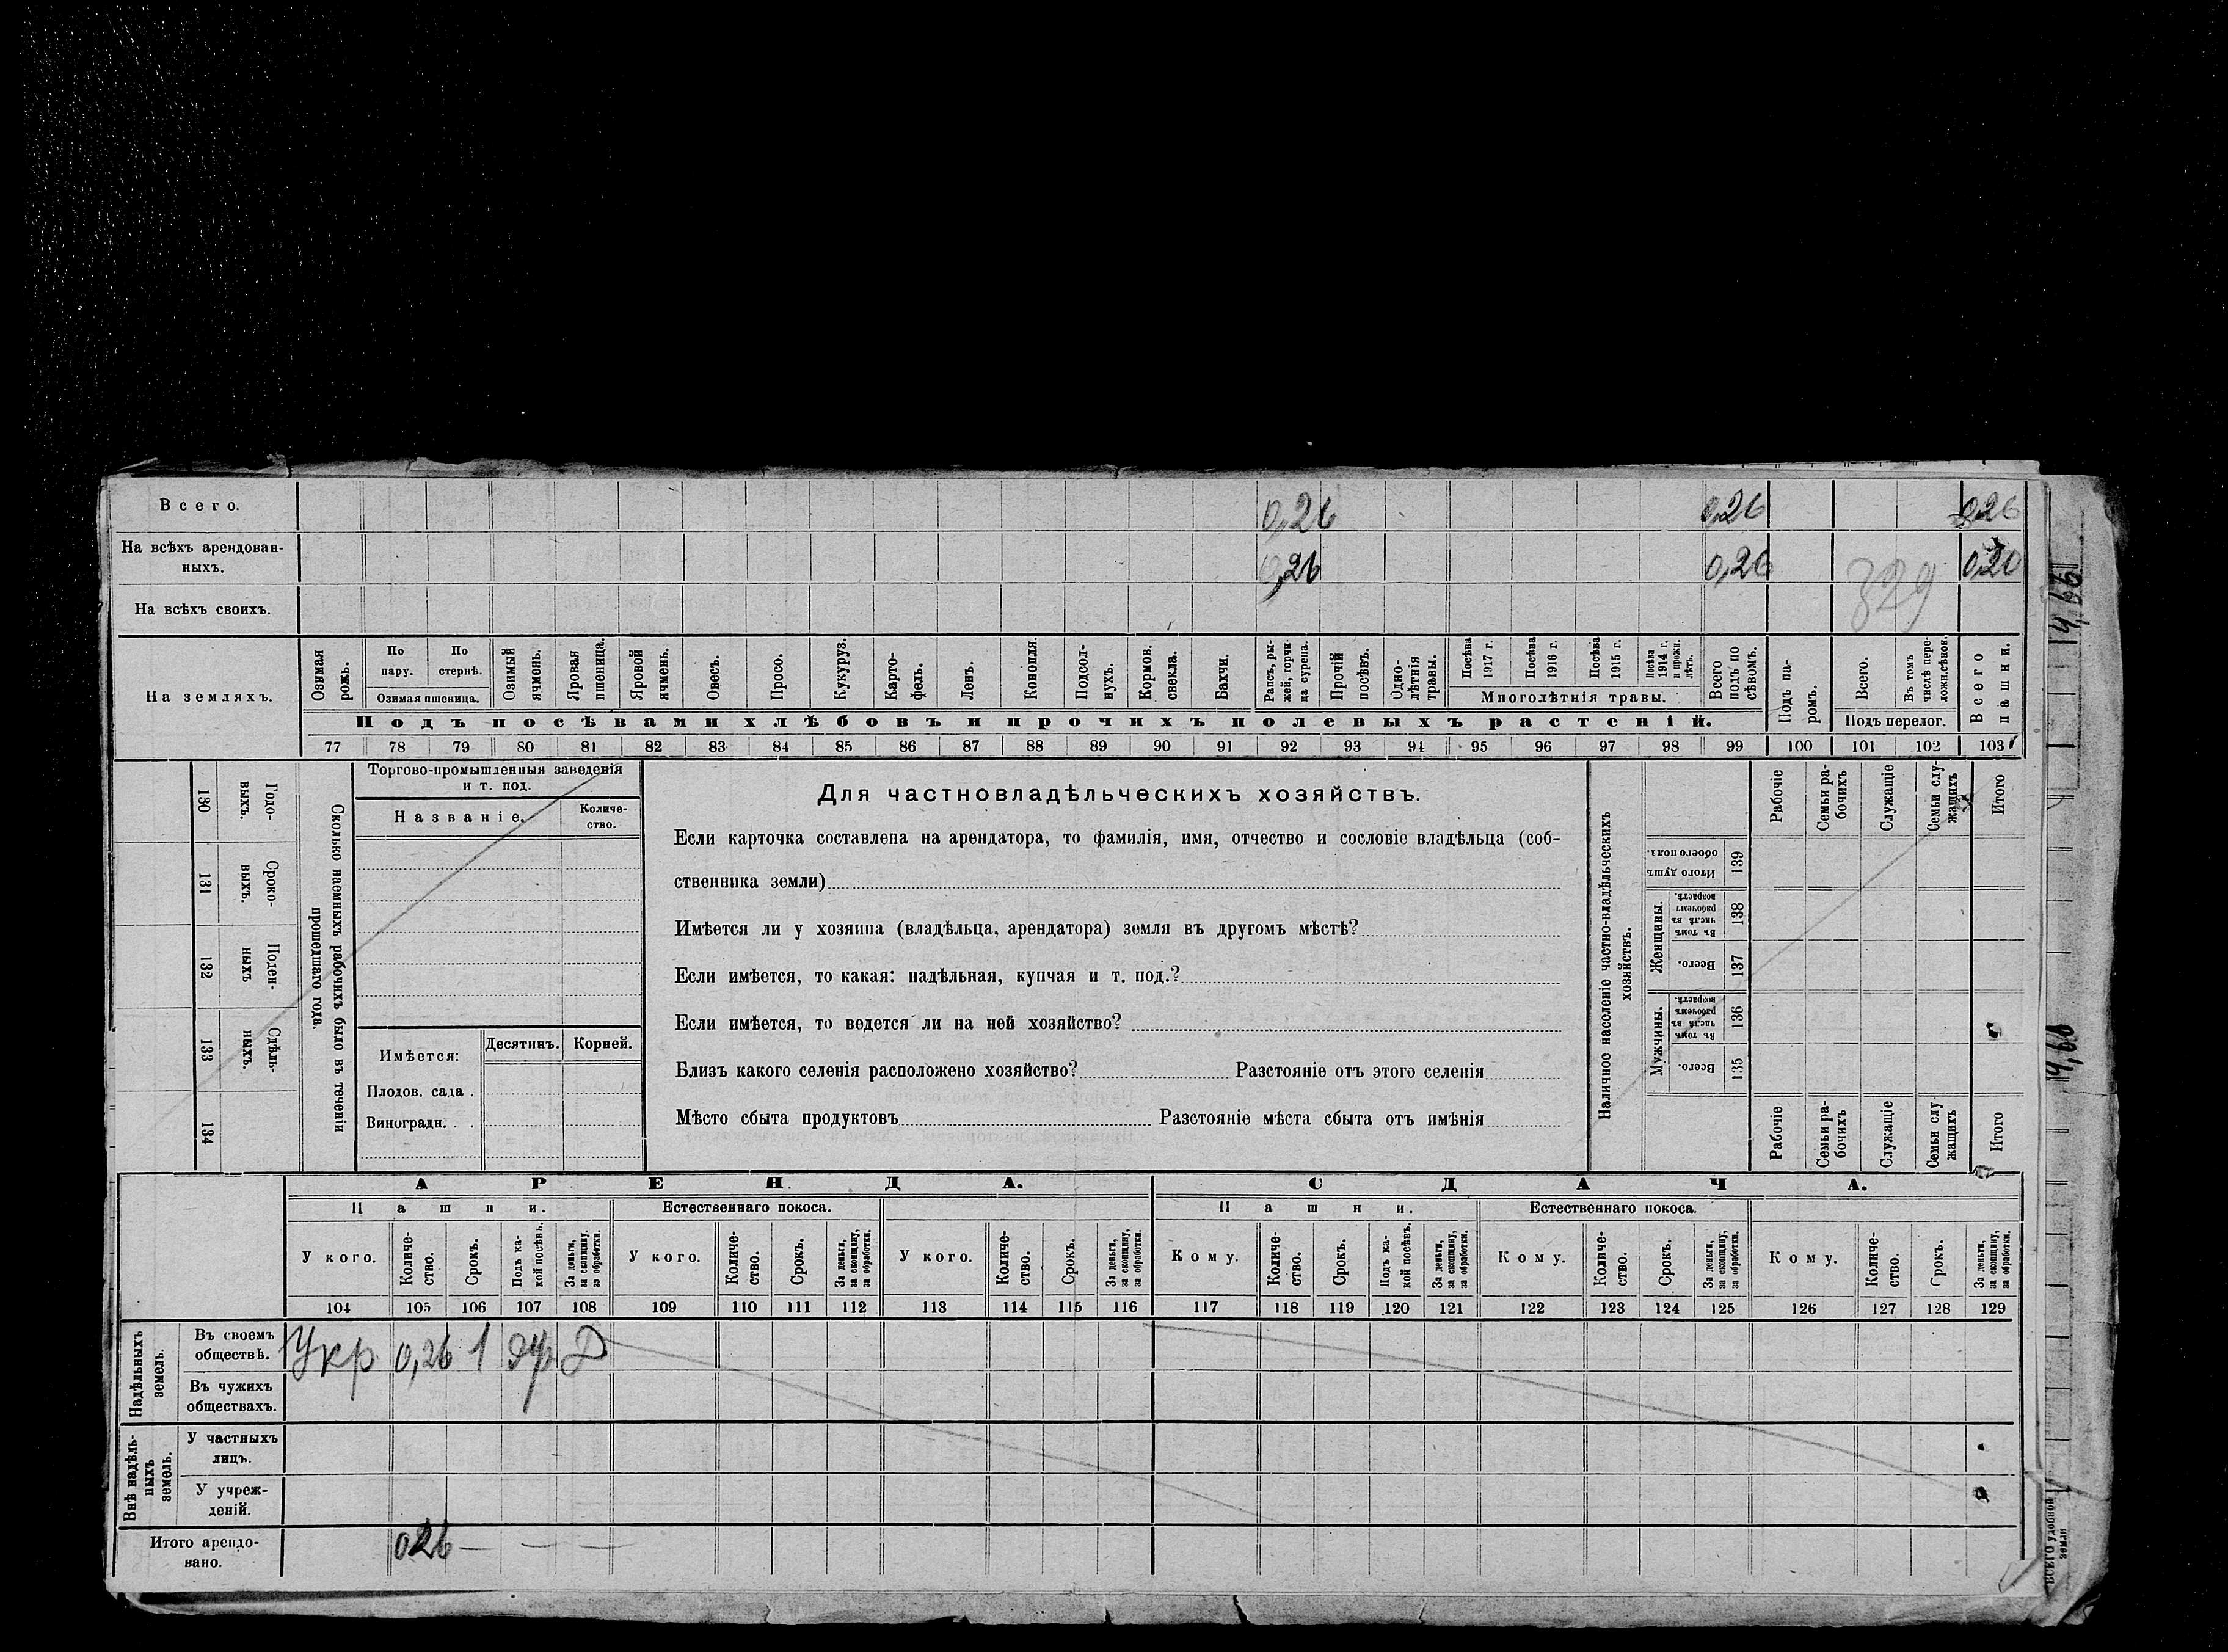 Всего. 0,26 0,26 0,26
На всѣхъ арендован-
ныхъ. 0,26 0,26 329
На всѣхъ своихъ.
На земляхъ.
Озимая рожь.
По пару.
По стернѣ.
Озимая пшеница.
Озимый ячмень.
Яровая пшеница.
Яровой ячмень.
Овесъ.
Просо.
Кукуруз.
Карто-
фель.
Ленъ.
Конопля.
Подсол-
нухъ.
Кормов. свекла.
Бахчи.
Рапсъ, ры-
жей, горчи
ца сурепа.
Прочій посѣвъ.
Одно-
лѣтнія травы.
Посѣва 1917 г.
Посѣва 1916 г.
Посѣва 1915 г.
Посѣва 1914 г. и прежн. лѣтъ.
Многолѣтнія травы.
Всего подъ по
сѣвомъ.
Подъ па-
ромъ.
Всего.
Въ томъ числѣ пере-
ложн. сѣнок.
Подъ перелог.
Всего пашни.
Подъ посѣвами хлѣбовъ и прочихъ полевыхъ растеній.
77 78 79 80 81 82 83 84 85 86 87 88 89 90 91 92 93 94 95 96 97 98 99 100 101 102 103
130 Годо-
выхъ.
131 Сроко-
ныхъ.
132 Поден-
ныхъ
133 Сдѣль-
ныхъ.
134
Сколько наемныхъ рабочихъ было въ теченіи
прошедшаго года.
Торгово-промышленныя заведенія
и т. под.
Названіе.
Количе-
ство.
Имѣется:
Десятинъ. Корней.
Плодов. сада .
Виноградн. . .
Для частновладѣльческихъ хозяйствъ.
Если карточка составлена на арендатора, то фамилія, имя, отчество и сословіе владѣльца (соб-
ственника земли)
Имѣется ли у хозяина (владѣльца, арендатора) земля въ другомъ мѣстѣ?
Если имѣется, то какая: надѣльная, купчая и т. под.?
Если имѣется, то ведется ли на ней хозяйство?
Близъ какого селенія расположено хозяйство? Разстояніе отъ этого селенія
Мѣсто сбыта продуктовъ Разстояніе мѣста сбыта отъ имѣнія
Наличное населеніе частно-владѣльческихъ
хозяйствъ.
Рабочіе
Семьи ра-
бочихъ
Служащіе
Семьи слу-
жащихъ
Итого
Итого душъ обоего пола. 139
Женщины.
Въ томъ числѣ въ рабочемъ возрастѣ. 138
Всего. 137
Мужчины.
Въ томъ числѣ въ рабочемъ возрастѣ. 136
Всего. 135
Рабочіе
Семьи ра-
бочихъ
Служащіе
Семьи слу
жащихъ
Итого
АРЕНДА. СДАЧА.
Пашни. Естественнаго покоса. Пашни. Естественнаго покоса.
У кого.
Количе-
ство.
Срокъ.
Подъ ка-
кой посѣвъ.
За деньги,
за скопщину,
за обработки.
У кого.
Количе-
ство.
Срокъ.
За деньги,
за скопщину,
за обработки.
У кого.
Количе-
ство.
Срокъ.
За деньги,
за скопщину,
за обработки.
Кому.
Количе-
ство.
Срокъ.
Подъ ка-
кой посѣвъ.
За деньги,
за скопщину,
за обработки.
Кому.
Количе-
ство.
Срокъ.
За деньги,
за скопщину,
за обработки.
Кому.
Количе-
ство.
Срокъ.
За деньги,
за скопщину,
за обработки.
104 105 106 107 108 109 110 111 112 113 114 115 116 117 118 119 120 121 122 123 124 125 126 127 128 129
Надѣльныхъ земель.
Въ своемъ
обществѣ. Укр 0,26 1 Д
Въ чужихъ
обществахъ.
Внѣ надѣль-
ныхъ
земель.
У частныхъ
лицъ.
У учреж-
деній.
Итого арендо-
вано. 026
ВСЕГО удобной
земли